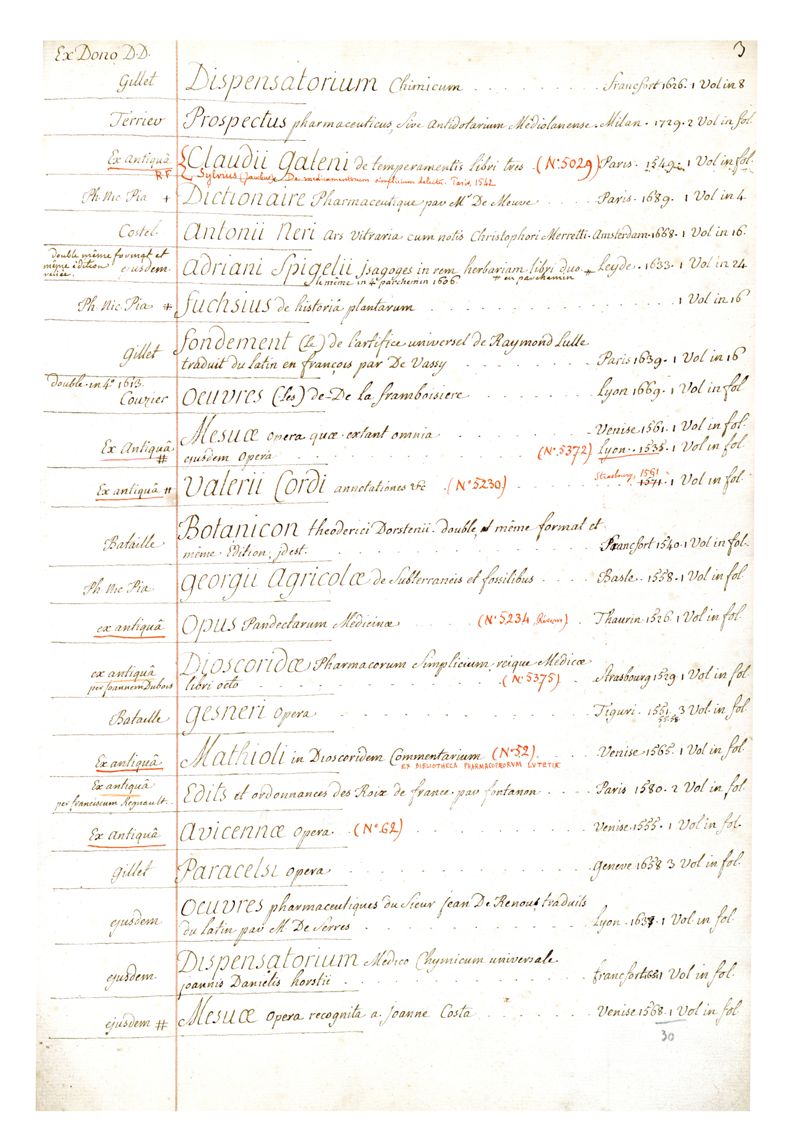 3
Ex Dono D.D.
Gillet Dispensatorium Chimicum . . . . . . . . Francfort 1626. 1 Vol in 8
Terrier Prospectus pharmaceuticus, Sive Antidotarium Mediolanense. Milan. 1729. 2 Vol in fol.
Ex Antiquâ Claudii Galeni de temperamentis libri tres (N° 5029) Paris. 1549. 1 Vol in fol.
R.F. Sylvius De medicamentorum simplicium delectu. Paris, 1542
Ph Nic Pia + Dictionaire Pharmaceutique par Mr De Meuve . . . . Paris. 1689. 1 Vol in 4
Costel. Antonii Neri Ars vitraria cum notis Christophori Merretti. Amsterdam. 1668. 1 Vol in 16.
double même format et
même édition
reliée. ejusdem. Adriani Spigelii Jsagoges in rem herbariam libri duo # Leyde. 1633. 1 Vol in 24
le même in 4° parchemin 1606 # en parchemin
Ph Nic Pia # fuchsius de historiâ plantarum . . . . . . . . 1 Vol in 16
Gillet fondement (le) de l'artifice universel de Raymond Lulle
traduit du latin en françois par De Vassy . . . . Paris 1639. 1 Vol in 16
double. in 4° 1613.
Couzier Oeuvres (les) de De la framboisiere . . . . Lyon 1669. 1 Vol in fol
Mesuæ opera quæ extant omnia . . . . Venise 1561. 1 Vol in fol.
Ex Antiquâ # ejusdem Opera . . . . (N° 5372) Lyon. 1535. 1 Vol in fol
Ex antiquâ # Valerii Cordi annotationes &c . (N° 5230) Strasbourg 1561 1571. 1 Vol in fol.
Bataille Botanicon theoderici Dorstenii. double, même format et
même Edition, jdest. . . . . Francfort 1540. 1 Vol in fol.
Ph Nic Pia georgii Agricolæ de Subterraneis et fossilibus . . . Basle. 1558. 1 Vol in fol.
ex antiquâ Opus Pandectarum Medicinæ (N° 5234 ) Thaurin 1526. 1 Vol in fol
ex antiquâ Dioscoridæ Pharmacorum Simplicium, reique Medicæ
per Joannem Dubois libri octo . . . . (N° 5375) Strasbourg 1529 1 Vol in fol.
Bataille gesneri Opera . . . . Tiguri. 1551 3 Vol. in fol
5558
Ex antiquâ Mathioli in Dioscoridem Commentarium (N° 52) Venise 1565. 1 Vol in fol.
EX BIBLIOTHECA PHARMACOPOEORUM LUTETIÆ
Ex antiquâ
per franciscum Regnault. Edits et ordonnances des Roix de france. par fontanon . Paris 1580. 2 Vol in fol
Ex Antiquâ Avicennæ Opera. (N° 62) . . . . Venise 1555. 1 Vol in fol.
Gillet Paracelsi Opera . . . . Geneve 1658 3 Vol in fol.
ejusdem Oeuvres pharmaceutiques du Sieur Jean De Renou traduits
du latin par Mr De Serres . . . . Lyon. 1637. 1 Vol in fol
ejusdem. Dispensatorium Medico Chymicum universale
joannis Danielis horstii . . . . francfort 1651 1 Vol in fol.
ejusdem # Mesuæ Opera recognita a Joanne Costa . . . . Venise 1568. 1 Vol in fol
30